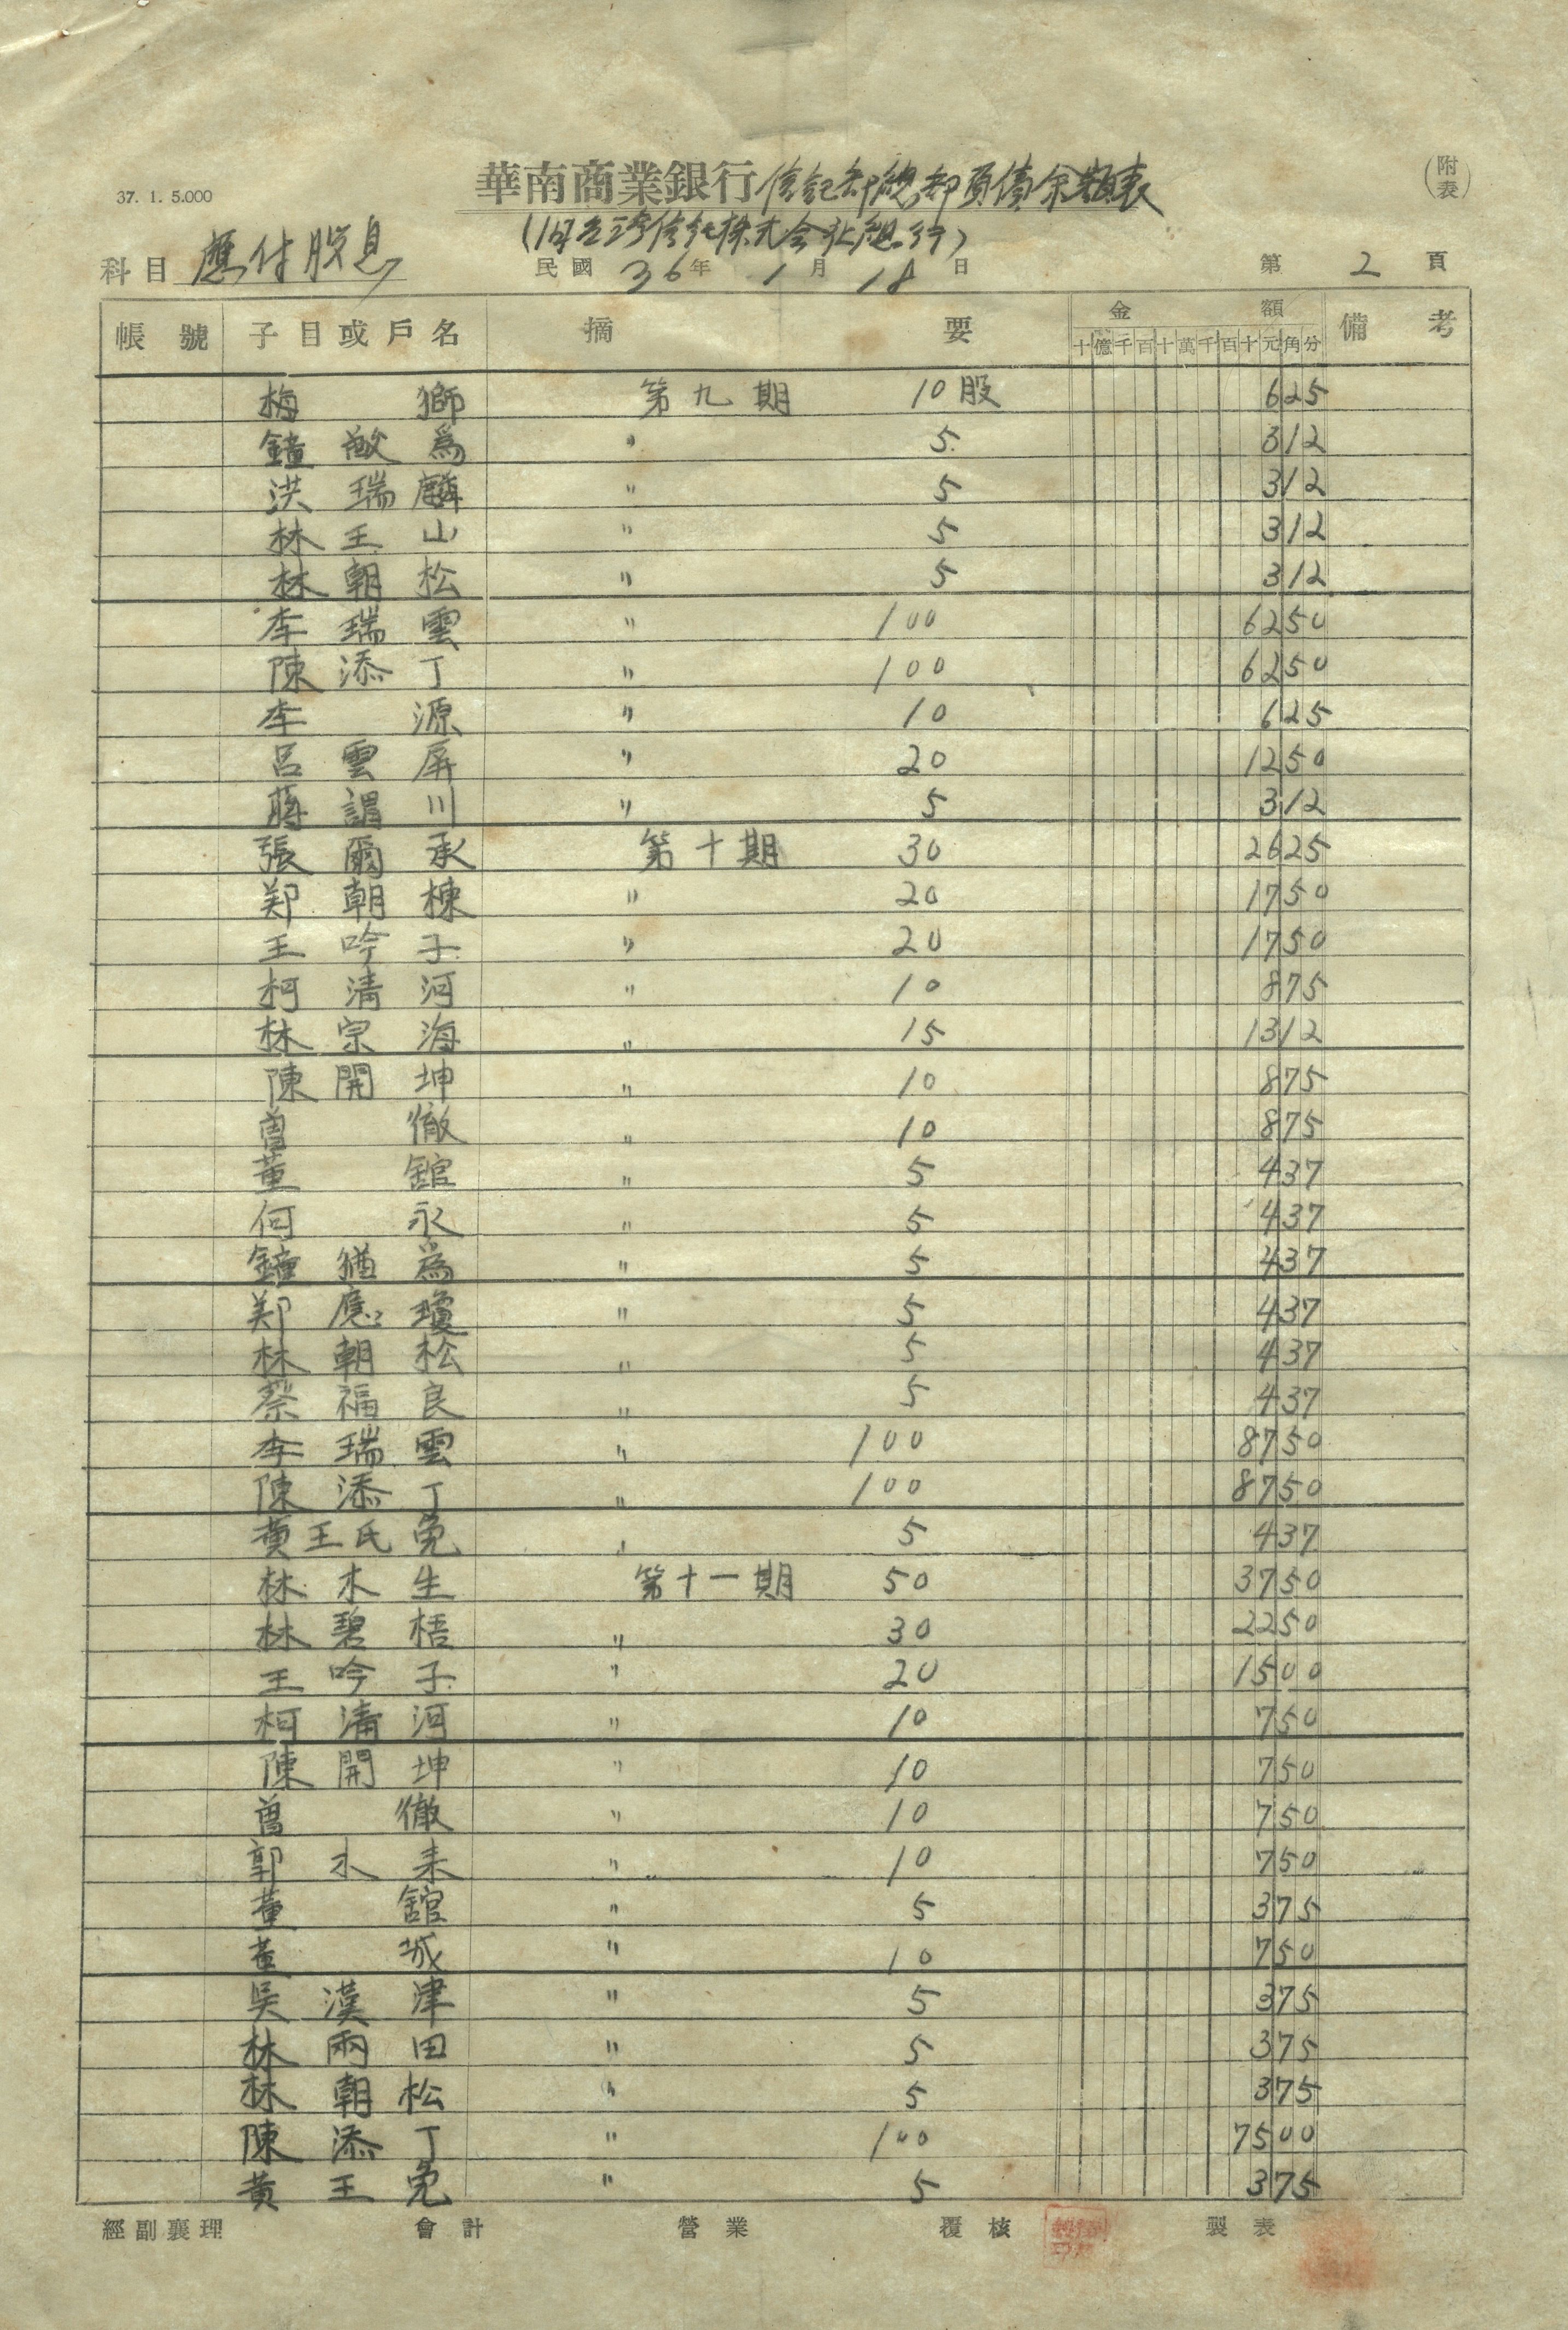 37. 1. 5.000
華南商業銀行信託部總部負債余額表
(附表)
(旧台湾信託株式会社總行)
科目 應付股息 民國 36年 1月 18日 第 2 頁
帳號 子目或戶名 摘要 金額 備考
十億千百十萬千百十元角分
梅 獅 第九期 10股 625
鐘敬為 〃 5 312
洪瑞麟 〃 5 312
林王山 〃 5 312
林朝松 〃 5 312
李瑞雲 〃 100 6250
陳添丁 〃 100 6250
李 源 〃 10 625
呂雲屏 〃 20 1250
蔣謂川 〃 5 312
張爾承 第十期 30 2625
郑朝棟 〃 20 1750
王吟子 〃 20 1750
柯清河 〃 10 875
林宗海 〃 15 1312
陳開坤 〃 10 875
曾 徹 〃 10 875
董 舘 〃 5 437
何 永 〃 5 437
鐘猶為 〃 5 437
郑應瓊 〃 5 437
林朝松 〃 5 437
蔡福良 〃 5 437
李瑞雲 〃 100 8750
陳添丁 〃 100 8750
黄王氏免 〃 5 437
林木生 第十一期 50 3750
林碧梧 〃 30 2250
王吟子 〃 20 1500
柯清河 〃 10 750
陳開坤 〃 10 750
曾 徹 〃 10 750
郭水来 〃 10 750
董 舘 〃 5 375
董 城 〃 10 750
吳漢津 〃 5 375
林兩田 〃 5 375
林朝松 〃 5 375
陳添丁 〃 100 7500
黄王免 〃 5 375
經副襄理 會計 營業 覆核 製表